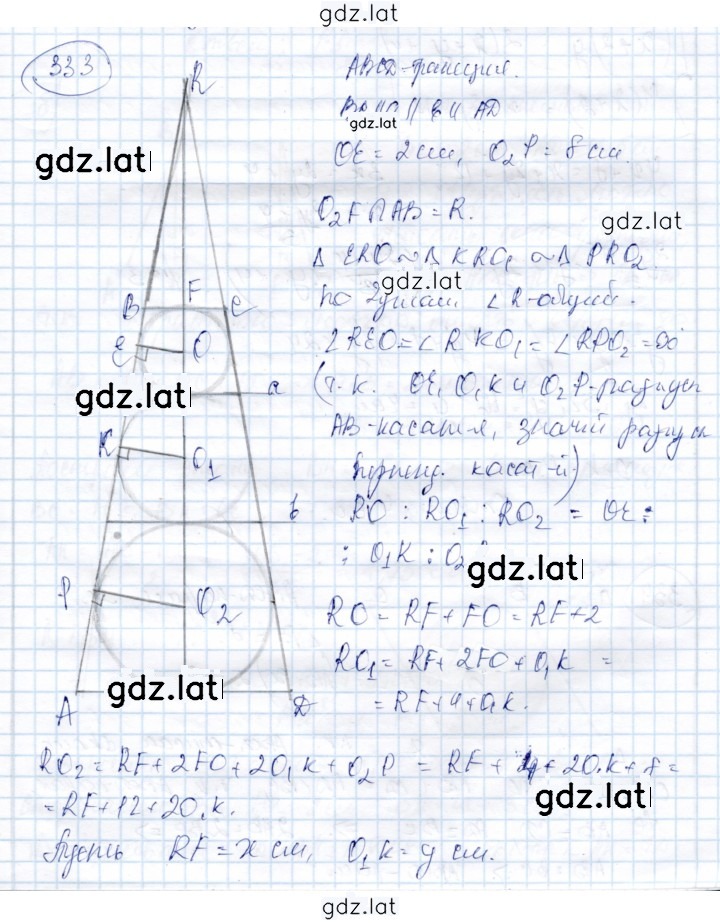 gdz.lat
333
ABCD-трапеция.
gdz.lat
a || b || AD
gdz.lat
OE = 2 см, O₂P = 8 см.
O₂F ∩ AB = R.
gdz.lat
Δ ERO ~ Δ KRO₁ ~ Δ PRO₂
gdz.lat
по 2 углам ∠R-общий.
∠REO = ∠RKO₁ = ∠RPO₂ = 90°
(т.к. OE, O₁K и O₂P-радиусы
AB-касат-я, значит радиусы
перпенд. касат-й)
RO : RO₁ : RO₂ = OE :
: O₁K : O₂
gdz.lat
RO = RF + FO = RF + 2
RO₁ = RF + 2FO + O₁K =
= RF + 4 + O₁K.
R
B F C
E O
gdz.lat
a
K O₁
b
P O₂
gdz.lat
A D
RO₂ = RF + 2FO + 2O₁K + O₂P = RF + 4 + 2O₁K + 8 =
= RF + 12 + 2O₁K.
gdz.lat
Пусть RF = x см, O₁K = y см.
gdz.lat